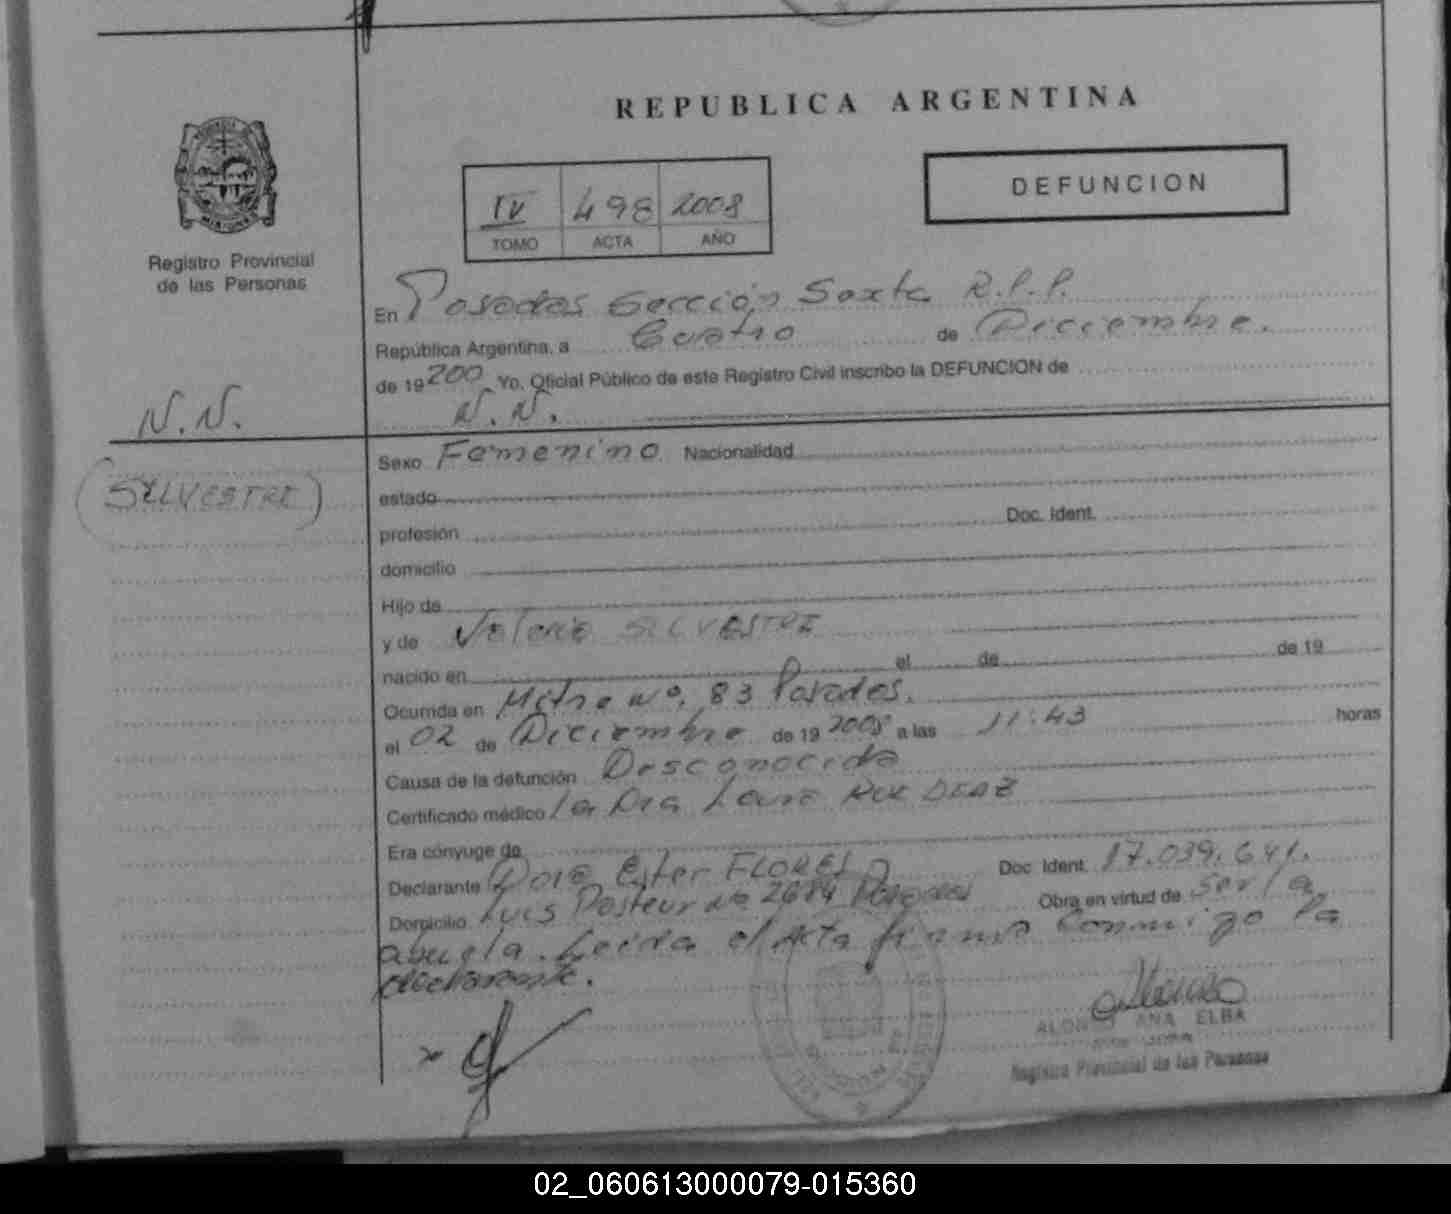 REPUBLICA ARGENTINA
DEFUNCION
IV 498 2008
TOMO ACTA AÑO
Registro Provincial
de las Personas
En Posadas Sección Sexta R.P.P.
República Argentina, a Cuatro de Diciembre.
de 19 200 Yo, Oficial Público de este Registro Civil inscribo la DEFUNCION de
N.N.
N.N.
(SILVESTRE)
Sexo Femenino Nacionalidad
estado
profesión Doc. Ident.
domicilio
Hijo de
y de Valeria SILVESTRE
nacido en el de de 19
Ocurrida en Mitre Nº. 83 Posadas.
el 02 de Diciembre de 19 2008 a las 11:43 horas
Causa de la defunción Desconocida
Certificado médico La Dra Laura
Era cónyuge de
Declarante Dora Ester FLORES Doc Ident. 17.039.641.
Domicilio Luis Pasteur Nº 2684 Posadas Obra en virtud de ser la
abuela. Leida el Acta firma Conmigo la
declarante.
ALONSO ANA ELBA
Registro Provincial de las Personas
02_060613000079-015360